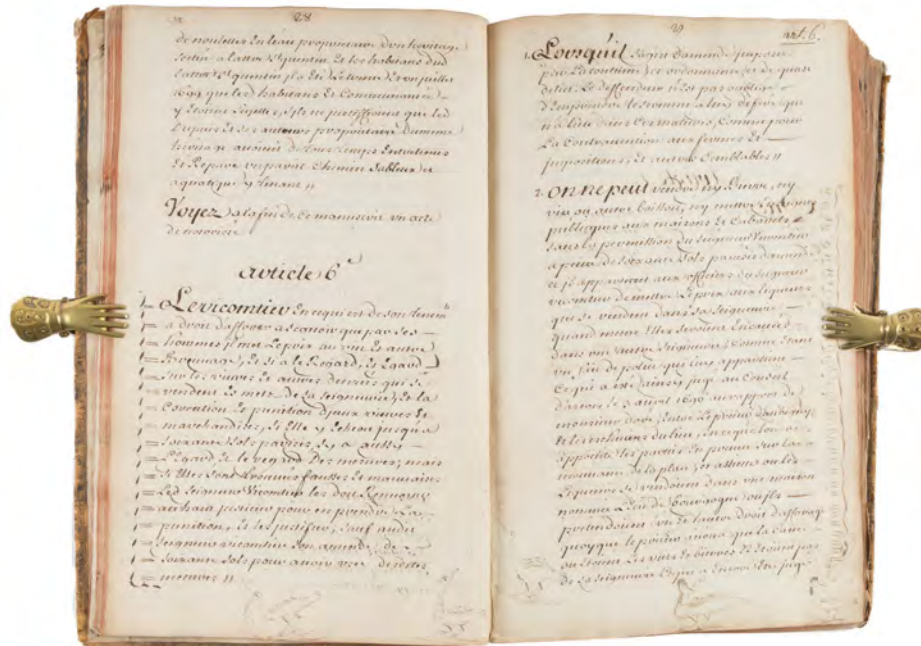 28
de nouvelles En leau proprietaire dun heritage
scitué a lattre St quentin Et les habitans dud
lattre St quentin, Il a Eté Retenu Et en juillet
1694 que les habitans Et Communauté
y Etoient
Lepuis Et ses auteurs proprietaire du meme
heritage auoient de tous temps Entretenus
Et Reparé chemin sableux et
aquatique y tenant //
Voyez a la fin de ce manuscrit un acte
de notorieté
article 6e
Le vicomtier En ce qui est de son tenemt
a droit dafforer a scauoir que par ses
hommes Il met Le prix au vin Et autre
Breuuage, Et si a le Regard, et Egard
sur les viures Et autres denrées qui se
vendent Es mets de sa seigneurie, Et la
Correction Et punition diceux viures Et
marchandises, si Elle y Echeoit jusqu'a
soixante sols parisis, Et y a aussy
LEgard Et le regard Des mesures, mais
si Elles sont trouuées fausses Et mauuaises
Led Seigneur Vicomtier les doit Renuoyer
au haut justicier pour en prendre La
punition, Et les justifier, sauf audit
seigneur vicomtier son amende de
soixante sols pour auoir usé desdites
mesures //
29
art. 6.
1. Lorsquil sagist damende Imposée
par La coutume, et ordonnances Et de quasi
delict Le deffendeur n'est pas obligé
d'Emprendre le serment a luy deferé, qui
n'a lieu dans Ces matieres, Comme pour
La Contrauention aux fermes Et
Impositions, Et autres semblables //
2. on ne peut vendre ny Bierre, ny
vin ou autre boisson, ny mettre Enseignes
publiques aux maisons Et Cabarets
sans la permission du seigneur Vicomtier
a peine de soixante sols parisis damende
Et il appartient aux officiers du seigneur
vicomtier de mettre Le prix aux liqueurs
qui se vendent dans sa seigneurie
quand meme Elles seroient Encauées
dans une autre seigneurie, Comme Etant
un fait de police qui Leur appartient
Ce qui a esté ainsy jugé au Conseil
d'artois le 3 auril 1696 au rapport de
monsieur
Et
appointé les parties En preuue sur la
situation de la place et assiette ou les
Liqueurs se vendoient dans une maison
nommée L'Ecu de Bourgogne ou Ils
pretendoient l'un Et l'autre droit dafforage
quoyque le prieur auoua que la caue
ou Etoient Les vins Et bierres N'Etoient pas
de sa seigneurie Ce qui a Encore Eté jugé